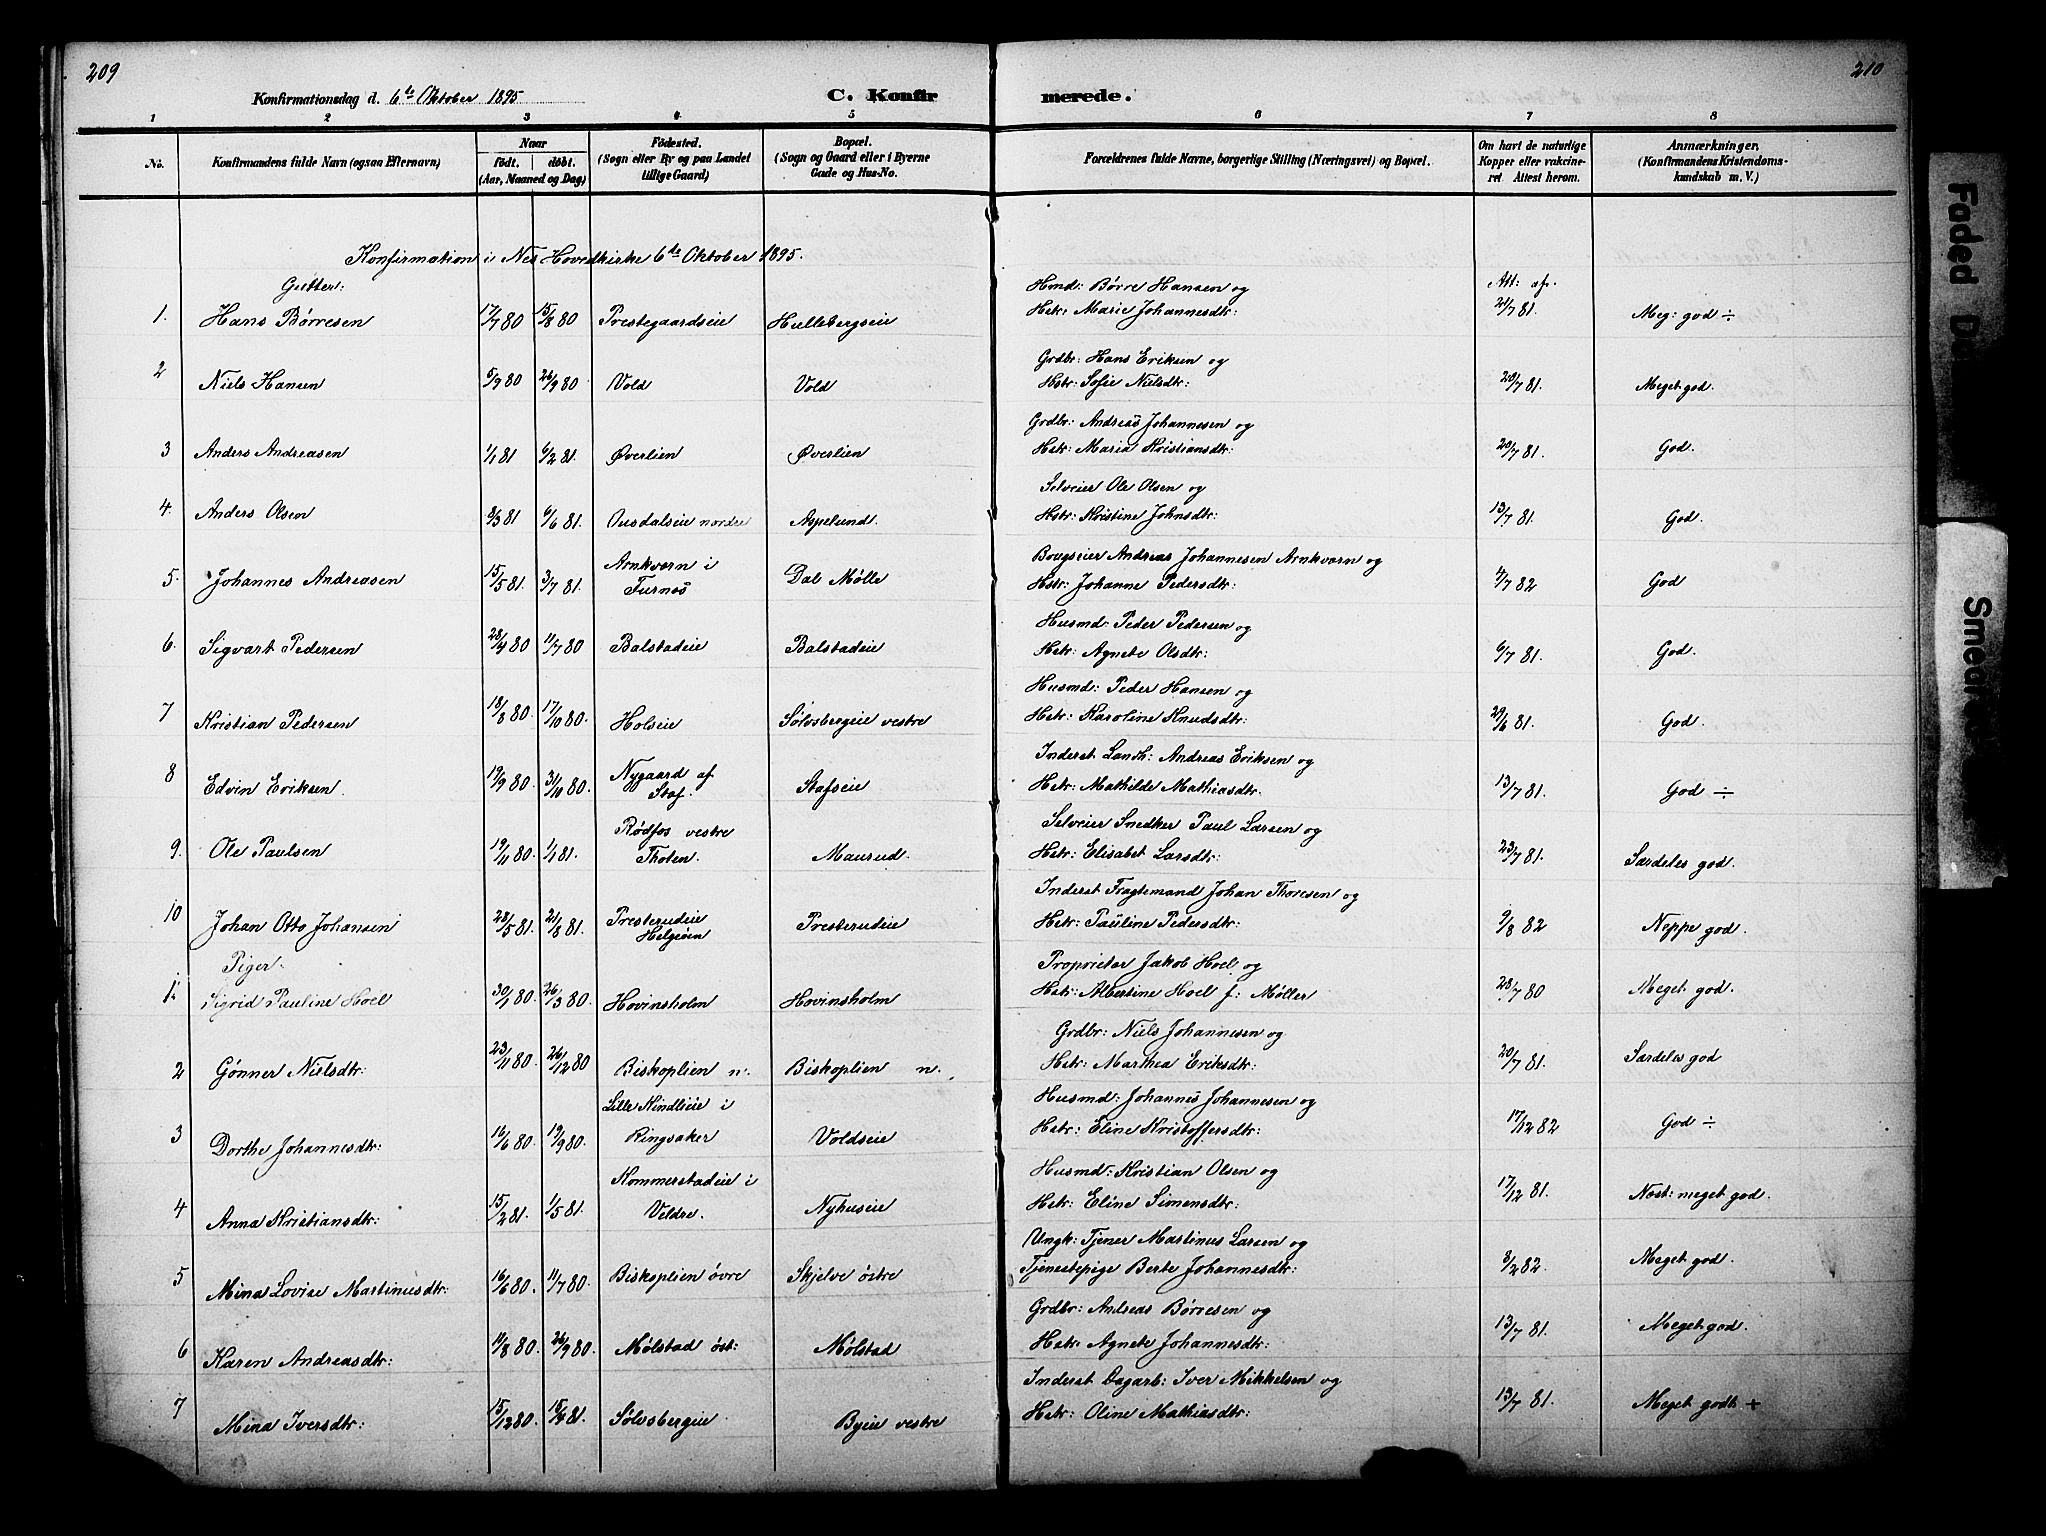 209
210
Konfirmationsdag d. 6te Oktober 1895
C. Konfirmerede.
1 2 3 4 5 6 7 8
No. Konfirmandens fulde Navn (ogsaa Efternavn) Naar født. døbt. (Aar, Maaned og Dag) Fødested. (Sogn eller By og paa Landet tillige Gaard) Bopæl. (Sogn og Gaard eller i Byerne Gade og Hus-No. Forældrenes fulde Navne, borgerlige Stilling (Næringsvei) og Bopæl. Om havt de naturlige Kopper eller vakcineret Attest herom. Anmærkninger. (Konfirmandens Kristendomskundskab m. V.)
Konfirmation i Nes Hovedkirke 6te Oktober 1895.
Gutter:
Hmd: Børre Hansen og Att: af.
1. Hans Børresen 17/7 80 15/8 80 Prestegaardseie Hullebergseie Hstr: Marie Johannesdtr: 21/7 81. Meg: god ÷
Grdbr: Hans Eriksen og
2 Niels Hansen 5/9 80 26/9 80 Vold Vold Hstr: Sofie Nielsdtr: 20/7 81. Meget god.
Grdbr: Andreas Johannesen og
3 Anders Andreasen 1/1 81 6/2 81. Øverlien Øverlien Hstr: Maria Kristiansdtr: 20/7 81. God.
Selveier Ole Olsen og
4. Anders Olsen 3/3 81 6/6 81. Ousdalseie nordre Appelund. Hstr: Kristine Johnsdtr: 13/7 81. God.
Arnkværn i Bougseier Andreas Johannesen Arnkværn og
5. Johannes Andreasen 15/5 81 3/7 81. Furnes Dal Mølle Hstr: Johanne Pedersdtr: 4/7 82 God
Husmd: Peder Pedersen og
6. Sigvart Pedersen 28/4 80 11/7 80 Balstadeie Balstadeie Hstr: Agnete Olsdtr: 6/7 81. God.
Husmd: Peder Hansen og
7 Kristian Pedersen 18/8 80 17/10 80. Holseie Sølvsbergeie vestre Hstr: Karoline Knudsdtr: 29/6 81. God.
Nygaard af Inderst Landh: Andreas Eriksen og
8 Edvin Eriksen. 19/9 80 31/10 80. Staf. Stafseie Hstr: Mathilde Mathiasdtr. 13/7 81. God ÷
Rødfos vestre Selveier Snedker Paul Larsen og
9. Ole Paulsen 19/11 80 1/1 81. Thoten. Maurud. Hstr: Elisabet Larsdtr: 23/7 81. Særdeles god.
Presterudeie Inderst Fragtemand Johan Thoresen og
10 Johan Otto Johansen 28/5 81. 21/8 81. Helgøen Presterudeie Hstr: Pauline Pedersdtr: 9/8 82 Neppe god.
Piger. Proprietær Jakob Hoel og
1. Sigrid Pauline Hoel 30/1 80. 26/3 80. Hovinsholm Hovinsholm Hstr: Albertine Hoel f: Møller 28/7 80 Meget god.
Grdbr: Niels Johannesen og
2 Gønner Nielsdtr: 23/11 80. 26/12 80 Biskoplien n. Biskoplien n. Hstr: Marthea Eriksdtr: 20/7 81. Særdeles god
Lille Kindlieie i Husmd: Johannes Johannesen og
3 Dorthe Johannesdtr: 16/6 80. 19/9 80. Ringsaker Voldseie Hstr: Eline Kristoffersdtr: 17/12 82 God ÷
Kommerstadeie i Husmd: Kristian Olsen og
4 Anna Kristiansdtr: 15/2 81. 1/5 81. Veldre. Nyhuseie Hstr: Eline Simensdtr: 17/12 81. Næst: meget god.
Ungk: Tjener Martinus Larsen og
5 Mina Lovise Martinusdtr: 16/6 80. 11/7 80. Biskoplien øvre Skjelve østre Tjenestepige Berte Johannesdtr: 8/2 82. Meget god.
Grdbr: Andreas Børresen og
6 Karen Andreasdtr: 14/8 80. 26/9 80. Mølstad øst: Mølstad Hstr: Agnete Johannesdtr: 13/7 81. Meget god.
Inderst Dagarb: Iver Mikkelsen og
7 Mina Iversdtr: 15/12 80. 15/4 81. Sølvsbergeie Byeie vestre Hstr: Oline Mathiasdtr: 13/7 81. Meget godt +
Faded